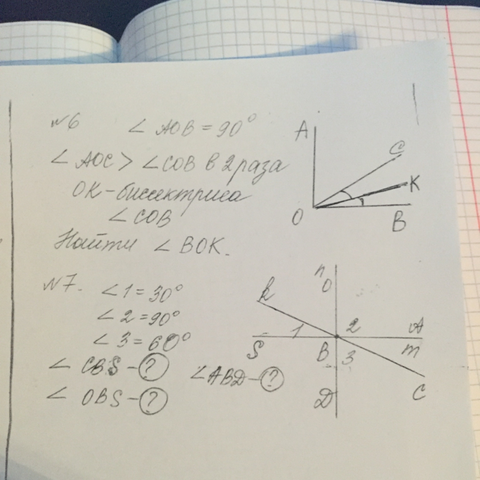 №6 ∠ AOB = 90°
∠ AOC > ∠ COB в 2 раза
OK - биссектриса
∠ COB
Найти ∠ BOK.
A
C
K
O
B
№7. ∠1 = 30°
∠2 = 90°
∠3 = 60°
∠ CBS - ?
∠ OBS - ?
∠ABD - ?
n
O
k
1
2
A
S
B
3
m
D
C